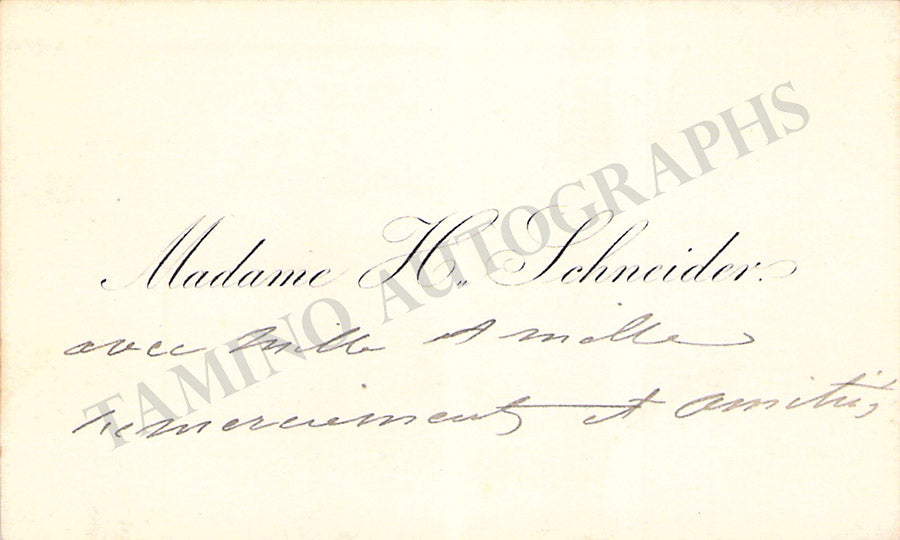 Madame H. Schneider.
avec mille et mille
remerciements et amitiés
TAMINO AUTOGRAPHS